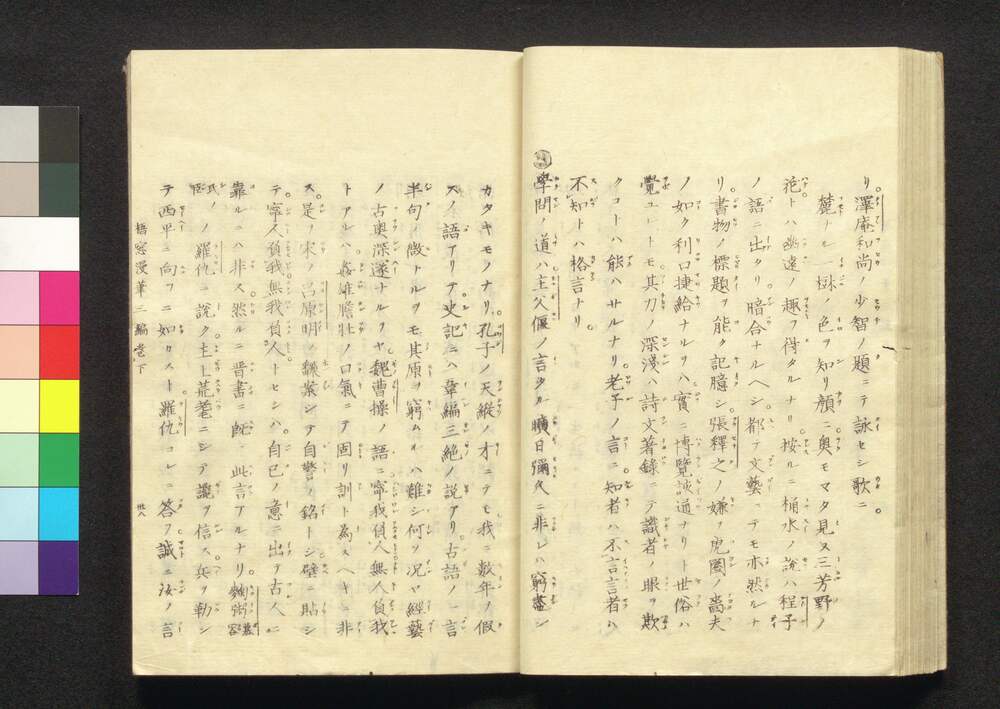 リ。澤庵和尚ノ少智ノ題ニテ詠セシ歌ニ
麓ナル一樹ノ色ヲ知リ顔ニ奥モマタ見ヌ三芳野ノ
花トハ幽遠ノ趣ヲ得タルナリ按ルニ桶水ノ説ハ程子
ノ語ニ出タリ暗合ナルヘシ都テ文藝ニテモ亦然ルナ
リ書物ノ標題ヲ能ク記臆シ張釋之ノ嫌ヲ虎圏ノ嗇夫
ノ如ク利口捷給ナルヲハ實ニ博覧談通ナリト世俗ハ
覺ユレトモ其力ノ深淺ハ詩文著録ニテ識者ノ眼ヲ欺
クコトハ能ハサルナリ老子ノ言ニ知者ハ不言言者ハ
不知トハ格言ナリ
學問ノ道ハ主父偃ノ言タル曠日彌久ニ非レハ窮盡シ
カタキモノナリ孔子ノ天縱ノ才ニテモ我ニ数年ノ假
スノ語アリテ史記ニハ韋編三絶ノ説アリ古語ノ一言
半句ノ微トルヲモ其原ヲ窮ムルハ難シ何ヲ况ヤ經藝
ノ古奥深邃ナルヲヤ魏曹操ノ語ニ寧我負人無人負我
トアルハ姦雄膽壯ノ口氣ニテ固リ訓ト為スヘキニ非
ス是ヲ宋ノ呂原明ノ 案シテ自警ノ銘トシ壁ニ貼シ
テ寧人負我無我負人。トセシハ自己ノ意ニ出テ古人ニ
靠ルニハ非ス然ルニ晋書ニ既 此言アルナリ
氏ノ ノ羅仇ニ説ク主上荒耄ニシテ讒ヲ信ス兵ヲ勒シ
テ西平ニ向フニ如クストト羅仇コレニ答フ誠ニ汝ノ言
梧窓漫筆三編巻下
卅八